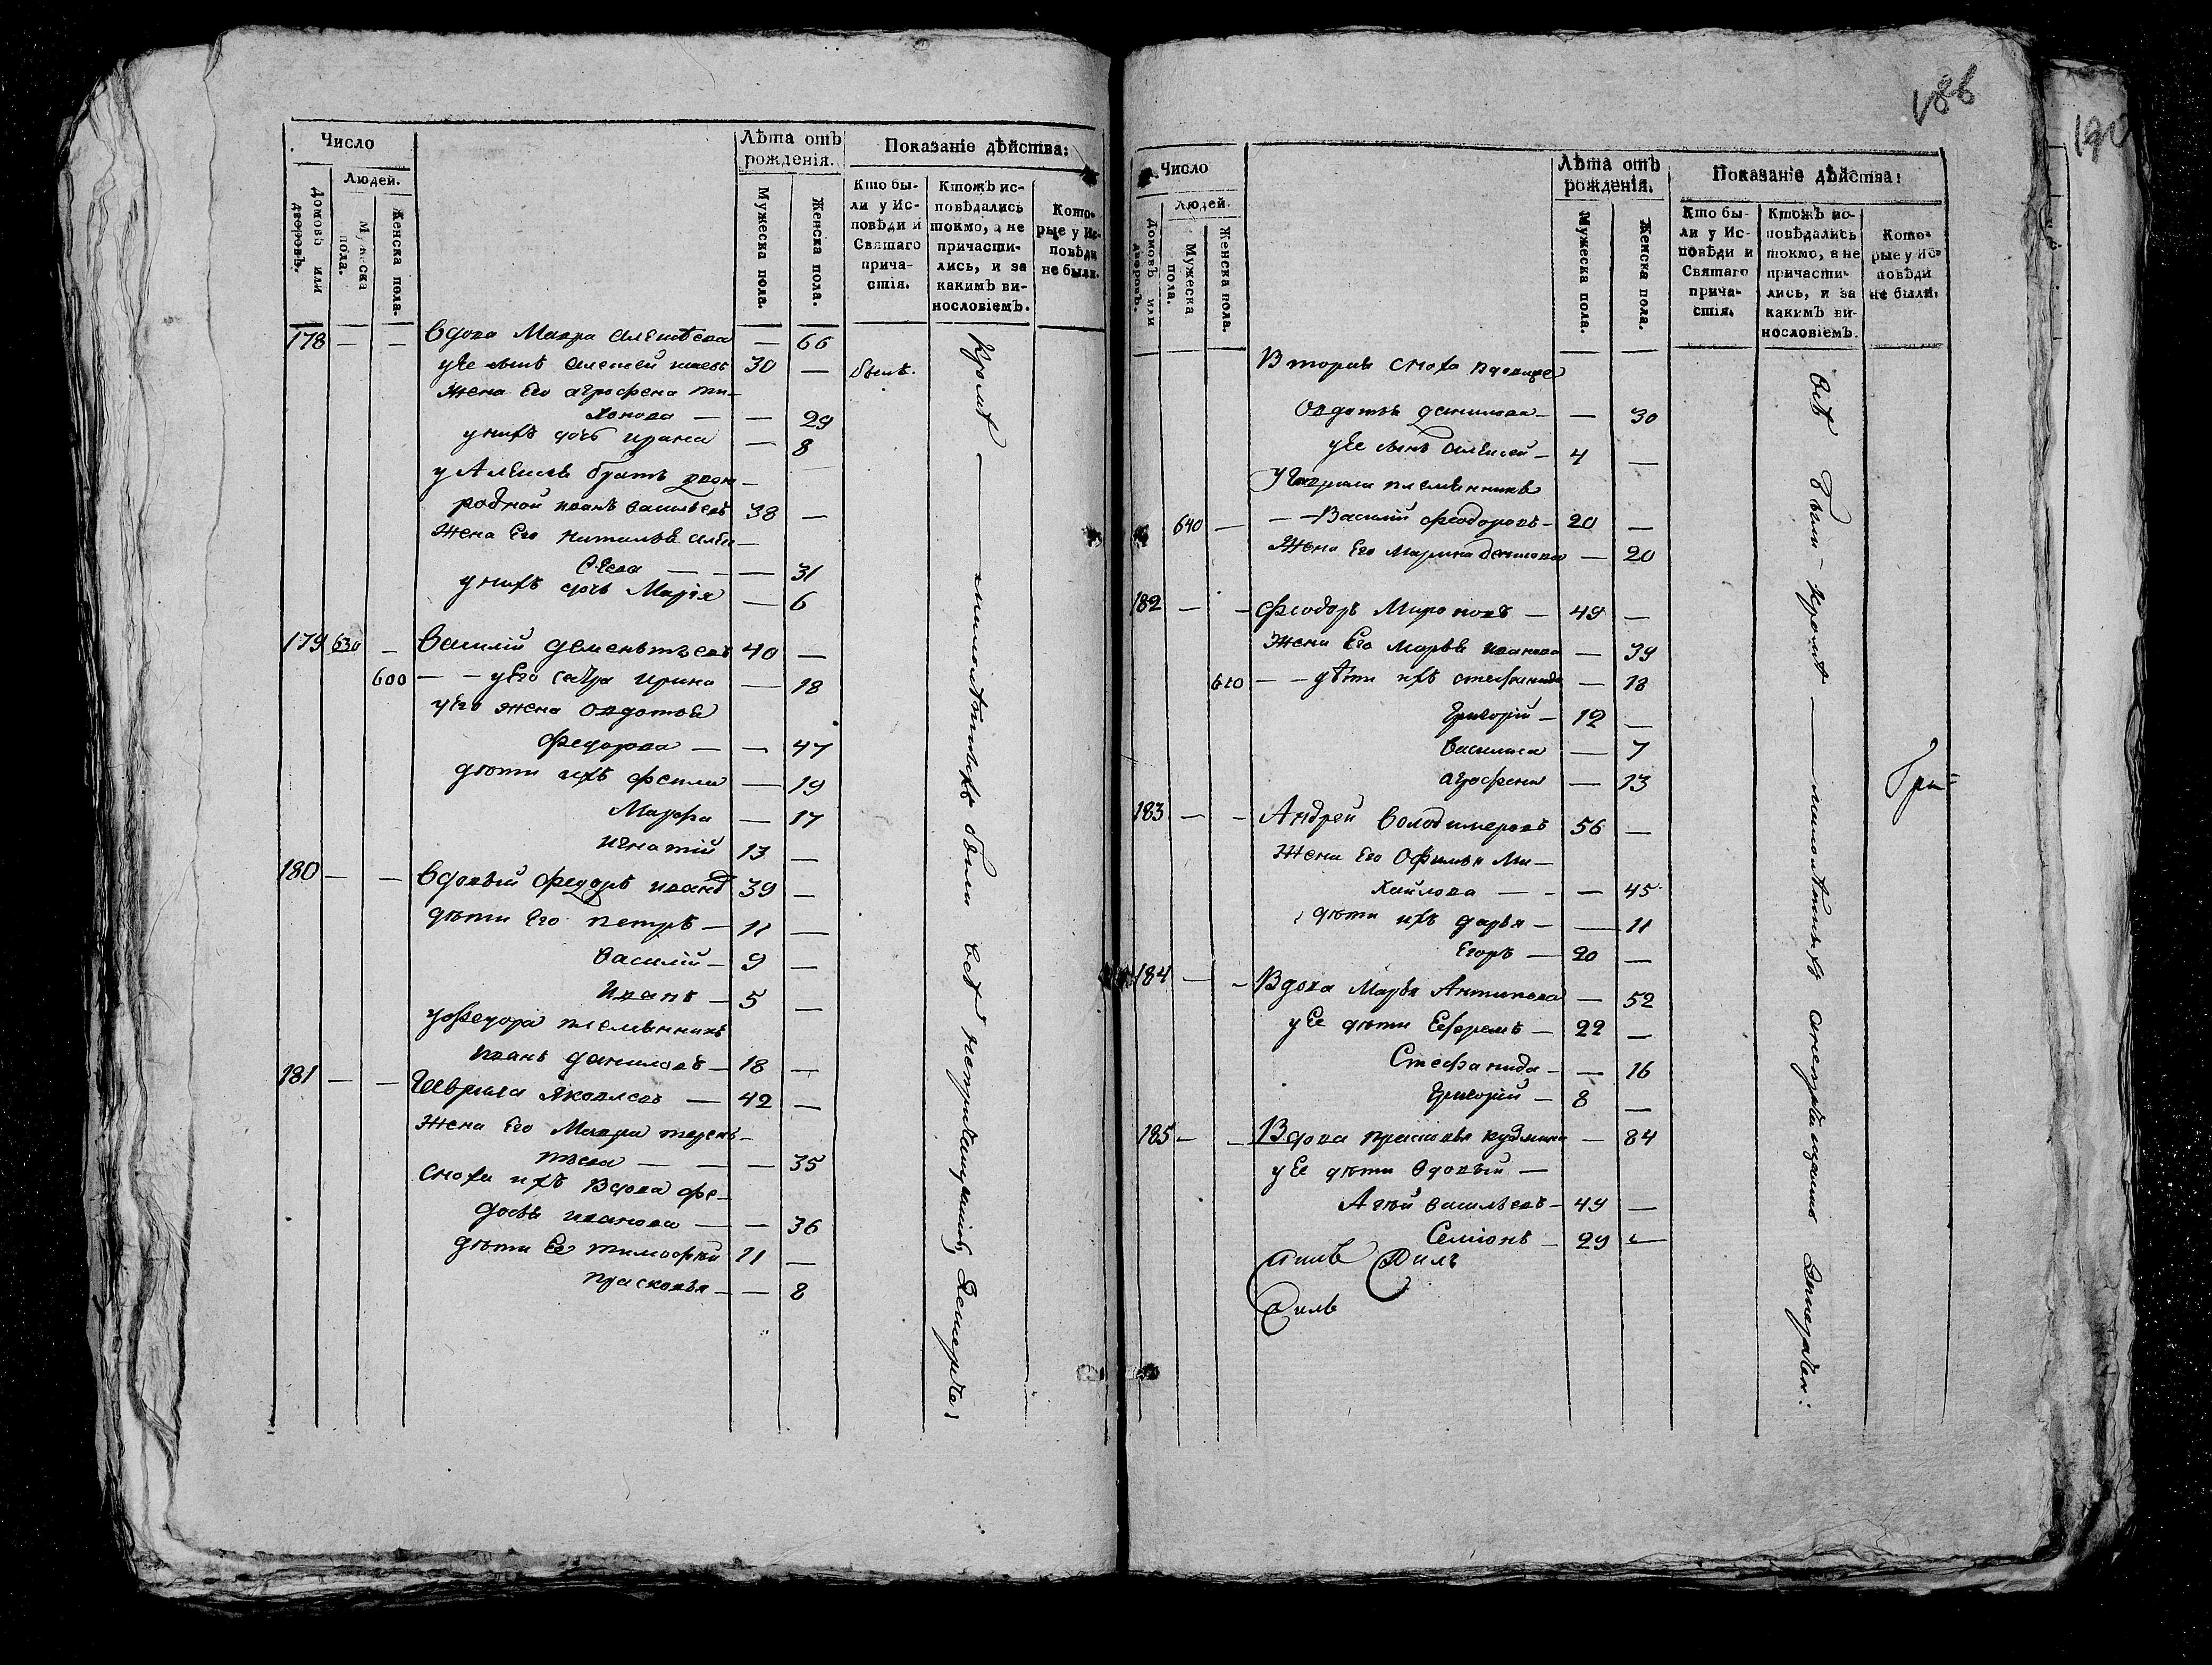 Число
Людей.
Домовъ или дворовъ.
Мужеска пола.
Женска пола.
Лѣта отъ рожденія.
Мужеска пола.
Женска пола.
Показаніе дѣйства:
Кто бы-
ли у Ис-
повѣди и
Святаго
прича-
стія.
Ктожъ ис-
повѣдались
токмо, а не
причасти-
лись, и за
какимъ ви-
нословіемъ.
Кото-
рые у Ис-
повѣди
не были.
178 — — вдова Мавра алексѣева — 66
у Ее сынъ алексей 30 — былъ.
жена Его агрофена ти-
хонова — — 29
у нихъ дочь ирина — 8
у Алексея братъ двою-
родной иванъ васильевъ 38 —
жена Его наталья алек-
сѣева — — — 31
у нихъ дочь Марія — 6
179 630 — василий дементьевъ 40 —
600 — — у Его сестра ирина — 18
у Его жена овдотья
федорова — — 47
дѣти ихъ фекла — 19
Марфа — 17
игнатій 13 —
180 — — вдовый федоръ ивановъ 39 —
дѣти Его петръ — 11 —
василій — 9 —
иванъ — 5 —
у федора племянникъ
иванъ даниловъ — 18 —
181 — — Гаврила яковлевъ — 42 —
жена Его Мавра терень-
тьева — — — 35
сноха ихъ вдова фе-
досья иванова — — 36
дѣти Ее тимофѣй 11 —
прасковья — — 8
кромѣ — малолѣтныхъ были всѣ
188
190
Число
Людей.
Домовъ или дворовъ.
Мужеска пола.
Женска пола.
Лѣта отъ рожденія.
Мужеска пола.
Женска пола.
Показаніе дѣйства:
Кто бы-
ли у Ис-
повѣди и
Святаго
прича-
стія.
Ктожъ ис-
повѣдались
токмо, а не
причасти-
лись, и за
какимъ ви-
нословіемъ.
Кото-
рые у Ис-
повѣди
не были.
Вторая сноха вдовица
Овдотья данилова — — 30
у Ее сынъ алексей — 4 —
У Гаврила племянникъ
640 — — — Василій феодоровъ — 20 —
Жена Его Марина — 20
182 — — феодоръ Мироновъ — 49 —
Жена Его Марья иванова — 39
610 — — дѣти ихъ стефанида — 18
Григорій — 12 —
василиса — 7
агрофена — 13
183 — — Андрей володимеровъ 56 —
Жена Его Офимья Ми-
хайлова — — — 45
дѣти ихъ дарья — — 11
Егоръ — 20 —
184 — — Вдова Марья Антипова — 52
у Ее дѣти Ефремъ — 22 —
Стефанида — — 16
Григорій — 8 —
185 — — Вдова прасковья кузмина — 84
у Ее дѣти вдовый —
васильевъ — 49 —
Семіонъ — 29 —
всѣ были кромѣ — малолѣтныхъ